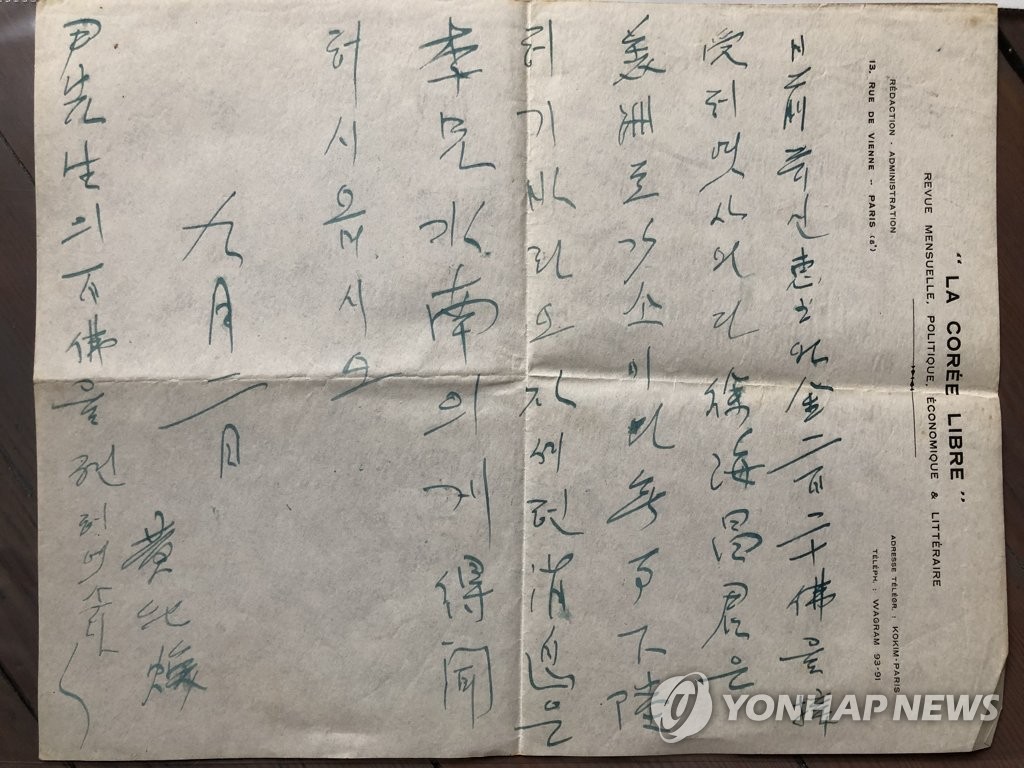 " LA CORÉE LIBRE "
REVUE MENSUELLE, POLITIQUE, ÉCONOMIQUE & LITTÉRAIRE
RÉDACTION - ADMINISTRATION
13, RUE DE VIENNE - PARIS (8ᵉ)
ADRESSE TÉLÉGR. : KOKIM-PARIS
TÉLÉPH. : WAGRAM 93-91
惠書와 金二百二十佛을 拜
受허엿사외다 徐海昌君은
美洲로 無事下陸
허기 바라오 자세헌 消息은
李兄水南의게 得聞
허시옵시오
九月二日
黃玘煥
尹先生의 百佛을 전허엿슴니다
YONHAP NEWS